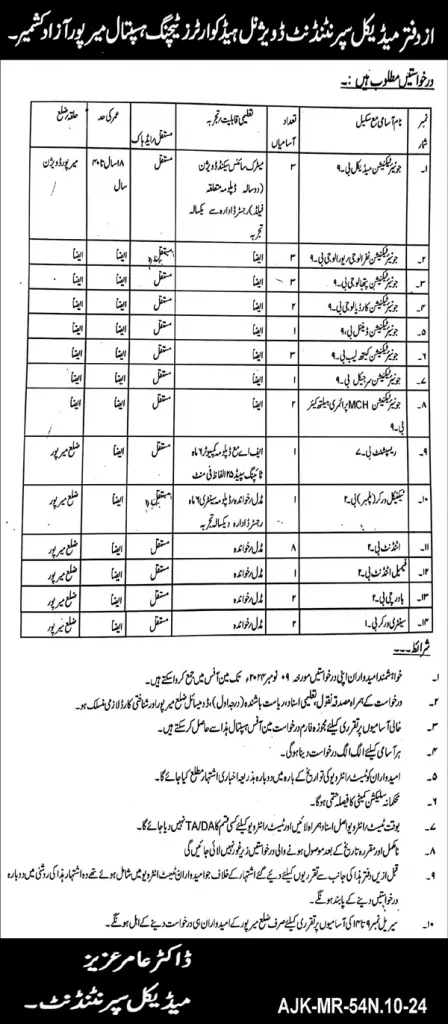 از دفتر میڈیکل سپرنٹنڈنٹ ڈویژنل ہیڈ کوارٹرز ٹیچنگ ہسپتال میرپور آزاد کشمیر۔
درخواستیں مطلوب ہیں:۔
نمبر شمار نام آسامی مع سکیل تعداد آسامیاں تعلیمی قابلیت/تجربہ مستقل/ایڈہاک عمر کی حد حلقہ/ضلع
۱۔ جونیئر ٹیکنیشن میڈیکل بی۔۹ ۳ میٹرک سائنس سیکنڈ ڈویژن مستقل ۱۸سال تا ۴۰ سال میرپور ڈویژن
(دو سالہ ڈپلومہ متعلقہ
فیلڈ) رجسٹرڈ ادارہ سے یکسالہ
تجربہ
۲۔ جونیئر ٹیکنیشن نفرالوجی/یورالوجی بی۔۹ ۳ ایضاً مستقل ایضاً ایضاً
۳۔ جونیئر ٹیکنیشن پتھالوجی بی۔۹ ۳ ایضاً مستقل ایضاً ایضاً
۴۔ جونیئر ٹیکنیشن کارڈیالوجی بی۔۹ ۲ ایضاً مستقل ایضاً ایضاً
۵۔ جونیئر ٹیکنیشن ڈینٹل بی۔۹ ۱ ایضاً مستقل ایضاً ایضاً
۶۔ جونیئر ٹیکنیشن کیتھ لیب بی۔۹ ۳ ایضاً مستقل ایضاً ایضاً
۷۔ جونیئر ٹیکنیشن سرجیکل بی۔۹ ۱ ایضاً مستقل ایضاً ایضاً
۸۔ جونیئر ٹیکنیشن MCH پرائمری ہیلتھ کیئر بی۔۹ ۲ ایضاً مستقل ایضاً ایضاً
۹۔ ریسپشنسٹ بی۔۷ ۱ ایف اے مع ڈپلومہ کمپیوٹر ۶ ماہ مستقل ایضاً ضلع میرپور
ٹائپنگ سپیڈ ۲۵ الفاظ فی منٹ
۱۰۔ ٹیکنیکل ورکر (پلمبر) بی۔۲ ۱ مڈل/خواندہ/ڈپلومہ سینٹری ۶ ماہ مستقل ایضاً ضلع میرپور
رجسٹرڈ ادارہ و یکسالہ تجربہ
۱۱۔ اٹنڈنٹ بی۔۲ ۸ مڈل/خواندہ مستقل ایضاً ضلع میرپور
۱۲۔ فیمیل اٹنڈنٹ بی۔۲ ۱ مڈل/خواندہ مستقل ایضاً ضلع میرپور
۱۳۔ باورچی بی۔۲ ۲ مڈل/خواندہ مستقل ایضاً ضلع میرپور
۱۴۔ سینٹری ورکر بی۔۱ ۲ مڈل/خواندہ مستقل ایضاً ضلع میرپور
شرائط۔۔۔
۱۔ خواہشمند امیدواران اپنی درخواستیں مورخہ ۰۹ نومبر ۲۰۲۴ تک مین آفس میں جمع کروا سکتے ہیں۔
۲۔ درخواست کے ہمراہ مصدقہ نقول، تعلیمی اسناد، ریاست باشندہ (درجہ اول)، ڈومیسائل ضلع میرپور اور شناختی کارڈ لازمی منسلک ہو۔
۳۔ خالی آسامیوں پر تقرری کیلئے مجوزہ فارم درخواست مین آفس ہسپتال ہذا سے حاصل کر سکتے ہیں۔
۴۔ ہر آسامی کیلئے الگ الگ درخواست دینا ہوگی۔
۵۔ امیدواران کو ٹیسٹ/انٹرویو کی تواریخ کے بارہ میں دوبارہ بذریعہ اخباری اشتہار مطلع کیا جائے گا۔
۶۔ محکمانہ سلیکشن کمیٹی کا فیصلہ حتمی ہوگا۔
۷۔ بوقت ٹیسٹ/انٹرویو اصل اسناد ہمراہ لائیں اور ٹیسٹ/انٹرویو کیلئے کسی قسم کا TA/DA نہیں دیا جائے گا۔
۸۔ نامکمل اور مقررہ تاریخ کے بعد موصول ہونے والی درخواستیں زیر غور نہیں لائی جائیں گی
۹۔ قبل ازیں دفتر ہذا کی جانب سے تقرریوں کیلئے دیے گئے اشتہار کے خلاف جو امیدواران ٹیسٹ انٹرویو میں شامل ہوئے تھے وہ اشتہار ہذا کی روشنی میں دوبارہ
درخواستیں دینے کے پابند ہونگے۔
۱۰۔ سیریل نمبر ۹ تا ۱۴ کی آسامیوں پر تقرری کیلئے صرف ضلع میرپور کے امیدواران ہی درخواست دینے کے اہل ہونگے۔
ڈاکٹر عامر عزیز
میڈیکل سپرنٹنڈنٹ۔
AJK-MR-54N.10-24